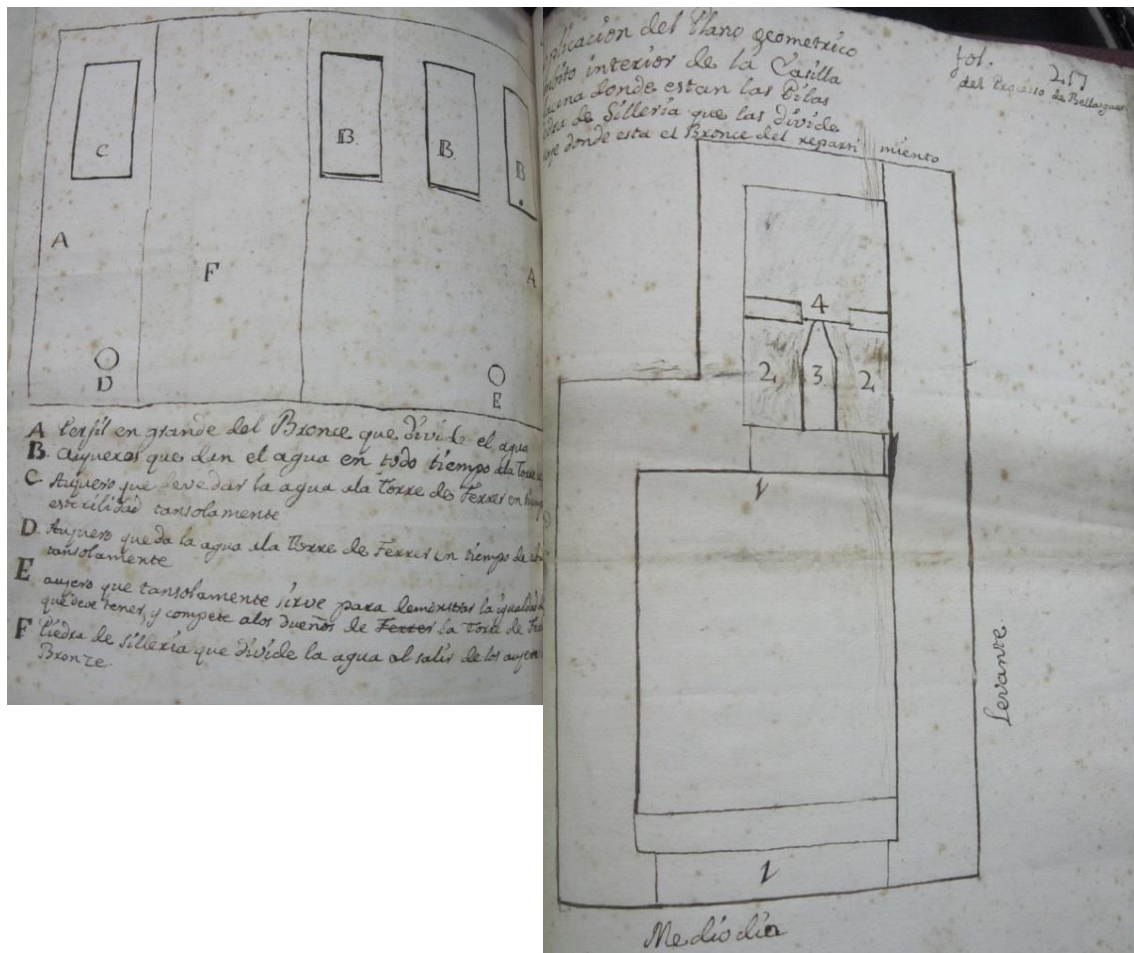 C
B.
B.
B
A
F
A
D
E
A Perfil en grande del Bronce que divide el agua
B. Aujueros que dan el agua en todo tiempo ala Torre
C. Aujuero que deve dar la agua ala Torre de Ferrer en
esterilidad tansolamente
D Aujuero que da la agua ala Torre de Ferrer en tiempo de
tansolamente
E aujero que tansolamente sirve para demostrar la igualdad
que deve tener, y compete alos dueños de Ferrer la Torre de
F Piedra de Silleria que divide la agua al salir de los aujeros
Bronze.
plicacion del Plano geometrico
interior de la Casilla
donde estan las Pilas
de Silleria que las divide
donde esta el Bronce del reparti miento
fol. 217
del Proceso de Bellesguar
4
2 3 2
1
1
Levante.
Mediodia